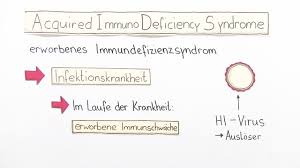 Acquired Immuno Deficiency Syndrome
erworbenes Immundefizienzsyndrom
Infektionskrankheit
Im Laufe der Krankheit:
erworbene Immunschwäche
HI-Virus
→ Auslöser